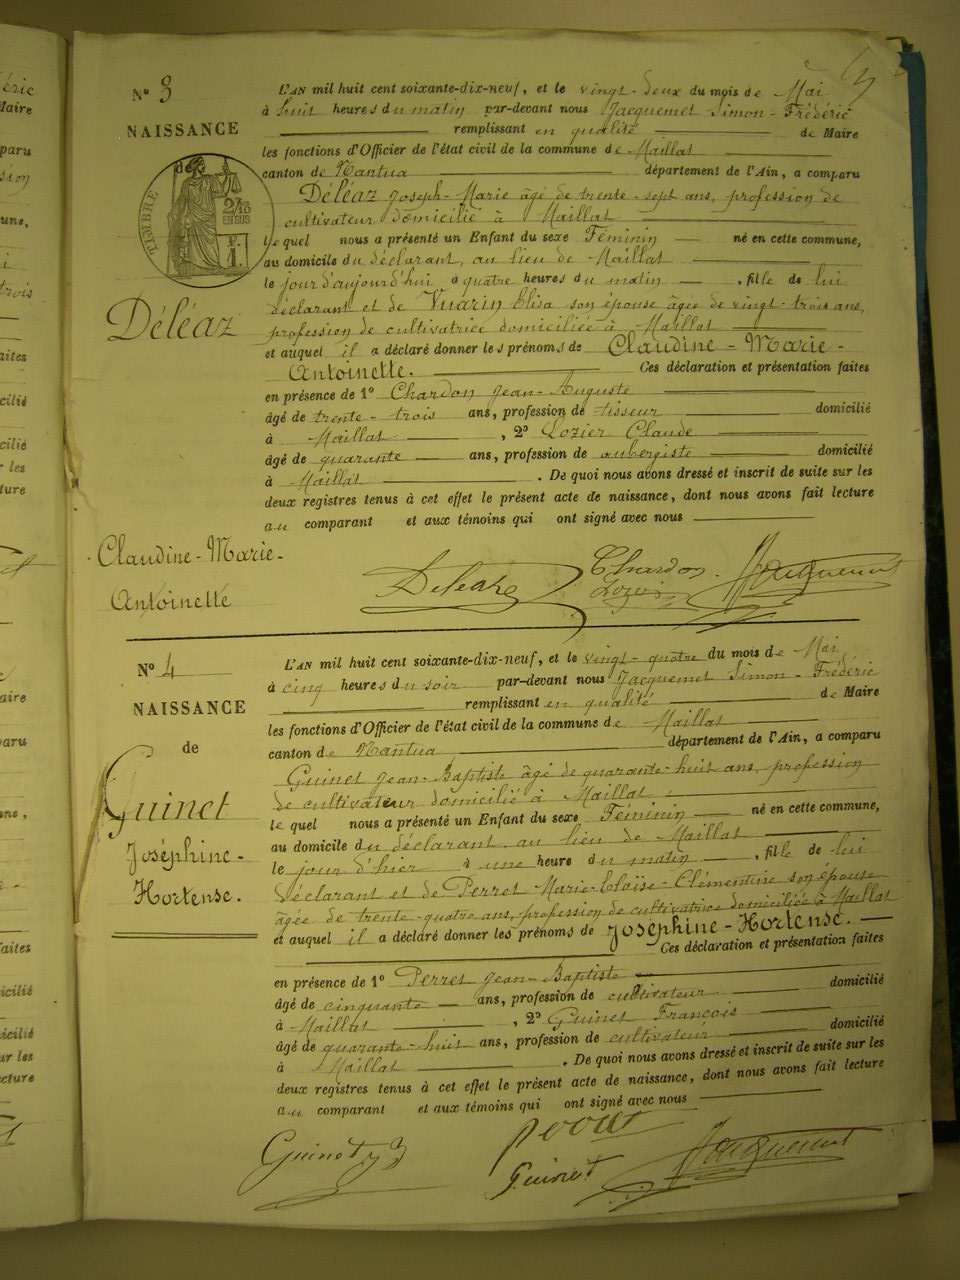 N° 3
NAISSANCE
de
TIMBRE
2/10
EN SUS
Déléaz
Claudine-Marie-
Antoinette
L'AN mil huit cent soixante-dix-neuf, et le vingt-deux du mois de Mai
à huit heures du matin par-devant nous Jacquemet Simon-Frédéric
remplissant en qualité de Maire
les fonctions d'Officier de l'état civil de la commune de Maillat
canton de Nantua département de l'Ain, a comparu
Déléaz Joseph-Marie âgé de trente-sept ans, profession de
cultivateur domicilié à Maillat
le quel nous a présenté un Enfant du sexe Féminin né en cette commune,
au domicile du déclarant, au lieu de Maillat
le jour d'aujourd'hui a quatre heures du matin, fille de lui
déclarant et de Vuarin Elisa son épouse âgée de vingt-trois ans,
profession de cultivatrice domiciliée à Maillat
et auquel il a déclaré donner les prénoms de Claudine-Marie-
Antoinette. Ces déclaration et présentation faites
en présence de 1° Chardon Jean-Auguste
âgé de trente-trois ans, profession de tisseur domicilié
à Maillat, 2° Lozier Claude
âgé de quarante ans, profession de aubergiste domicilié
à Maillat. De quoi nous avons dressé et inscrit de suite sur les
deux registres tenus à cet effet le présent acte de naissance, dont nous avons fait lecture
au comparant et aux témoins qui ont signé avec nous
Deléaz Chardon Jacquemet
Lozier
N° 4
NAISSANCE
de
Guinet
Joséphine-
Hortense.
L'AN mil huit cent soixante-dix-neuf, et le vingt-quatre du mois de Mai
à cinq heures du soir par-devant nous Jacquemet Simon-Frédéric
remplissant en qualité de Maire
les fonctions d'Officier de l'état civil de la commune de Maillat
canton de Nantua département de l'Ain, a comparu
Guinet Jean-Baptiste âgé de quarante-huit ans, profession
de cultivateur domicilié à Maillat
le quel nous a présenté un Enfant du sexe Féminin né en cette commune,
au domicile du déclarant, au lieu de Maillat
le jour d'hier à une heure du matin, fille de lui
déclarant et de Perret Marie-Eloïse-Clémentine son épouse
âgée de trente-quatre ans, profession de cultivatrice domiciliée à Maillat
et auquel il a déclaré donner les prénoms de Joséphine-Hortense.
Ces déclaration et présentation faites
en présence de 1° Perret Jean-Baptiste
âgé de cinquante ans, profession de cultivateur domicilié
à Maillat, 2° Guinet François
âgé de quarante-huit ans, profession de cultivateur domicilié
à Maillat. De quoi nous avons dressé et inscrit de suite sur les
deux registres tenus à cet effet le présent acte de naissance, dont nous avons fait lecture
au comparant et aux témoins qui ont signé avec nous
Guinet J B Jacquemet
Guinet